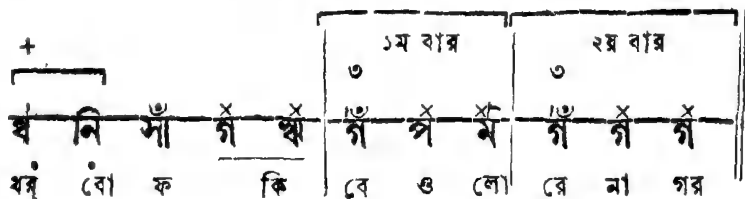 ১ম বার ২য় বার
+ ৩ ৩
ধ নি সাঁ গঁ ঋ গঁ প ম গঁ গঁ গঁ
ধর্ বো ফ কি বে ও লো রে না গর